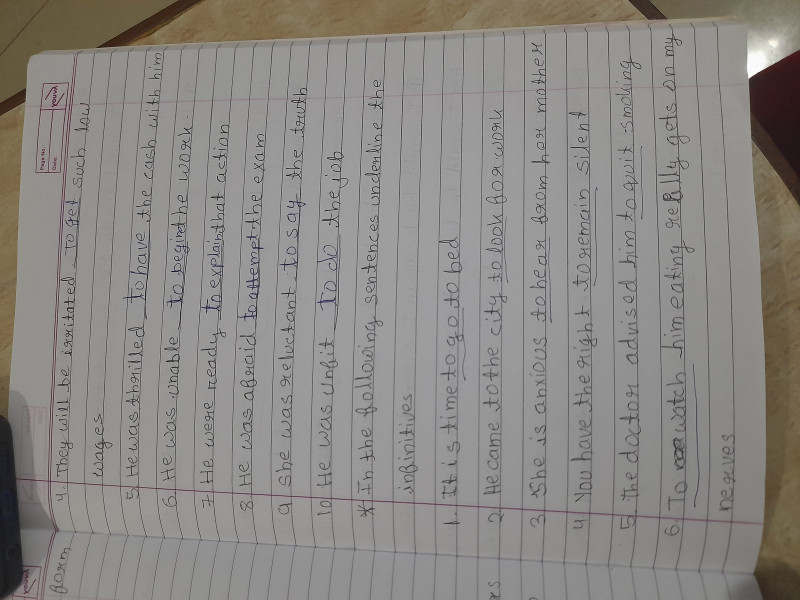 form.
Page No.:
Date:
YOUVA
4. They will be irritated to get such low
wages
5. He was thrilled to have the cash with him
6. He was unable to begin the work.
7. He were ready to explain that action
8. He was afraid to attempt the exam
9 She was reluctant to say the truth
10 He was unfit to do the job
* In the following sentences underline the
infinitives
1. It is time to go to bed
2 He came to the city to look for work
3. She is anxious to hear from her mother
4 You have the right to remain silent
5. The doctor advised him to quit smoking
6. To watch him eating really gets on my
nerves